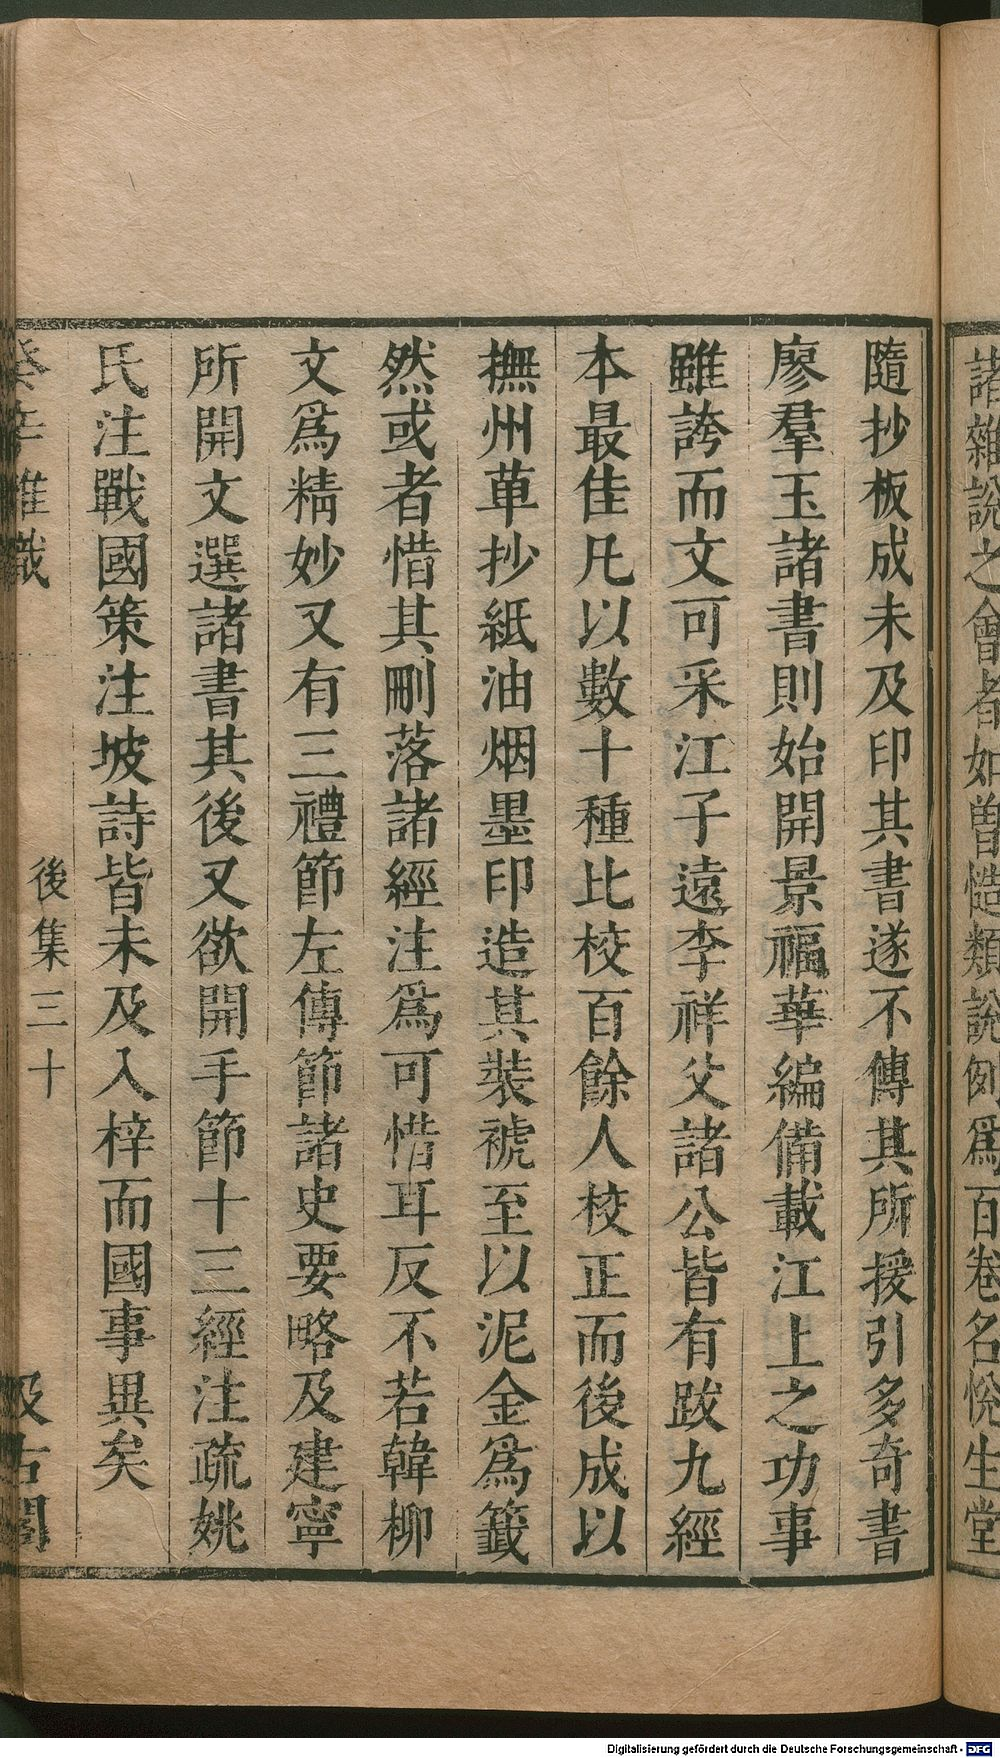 諸雜說之會者如曾慥類說例爲百卷名悅生堂
隨抄板成未及印其書遂不傳其所援引多奇書
廖羣玉諸書則始開景福華編備載江上之功事
雖誇而文可采江子遠李祥父諸公皆有跋九經
本最佳凡以數十種比校百餘人校正而後成以
撫州萆抄紙油烟墨印造其裝褫至以泥金爲籤
然或者惜其刪落諸經注爲可惜耳反不若韓柳
文爲精妙又有三禮節左傳節諸史要略及建寧
所開文選諸書其後又欲開手節十三經注疏姚
氏注戰國策注坡詩皆未及入梓而國事異矣
癸辛雜識
後集三十
汲古閣
Digitalisierung gefördert durch die Deutsche Forschungsgemeinschaft - DFG